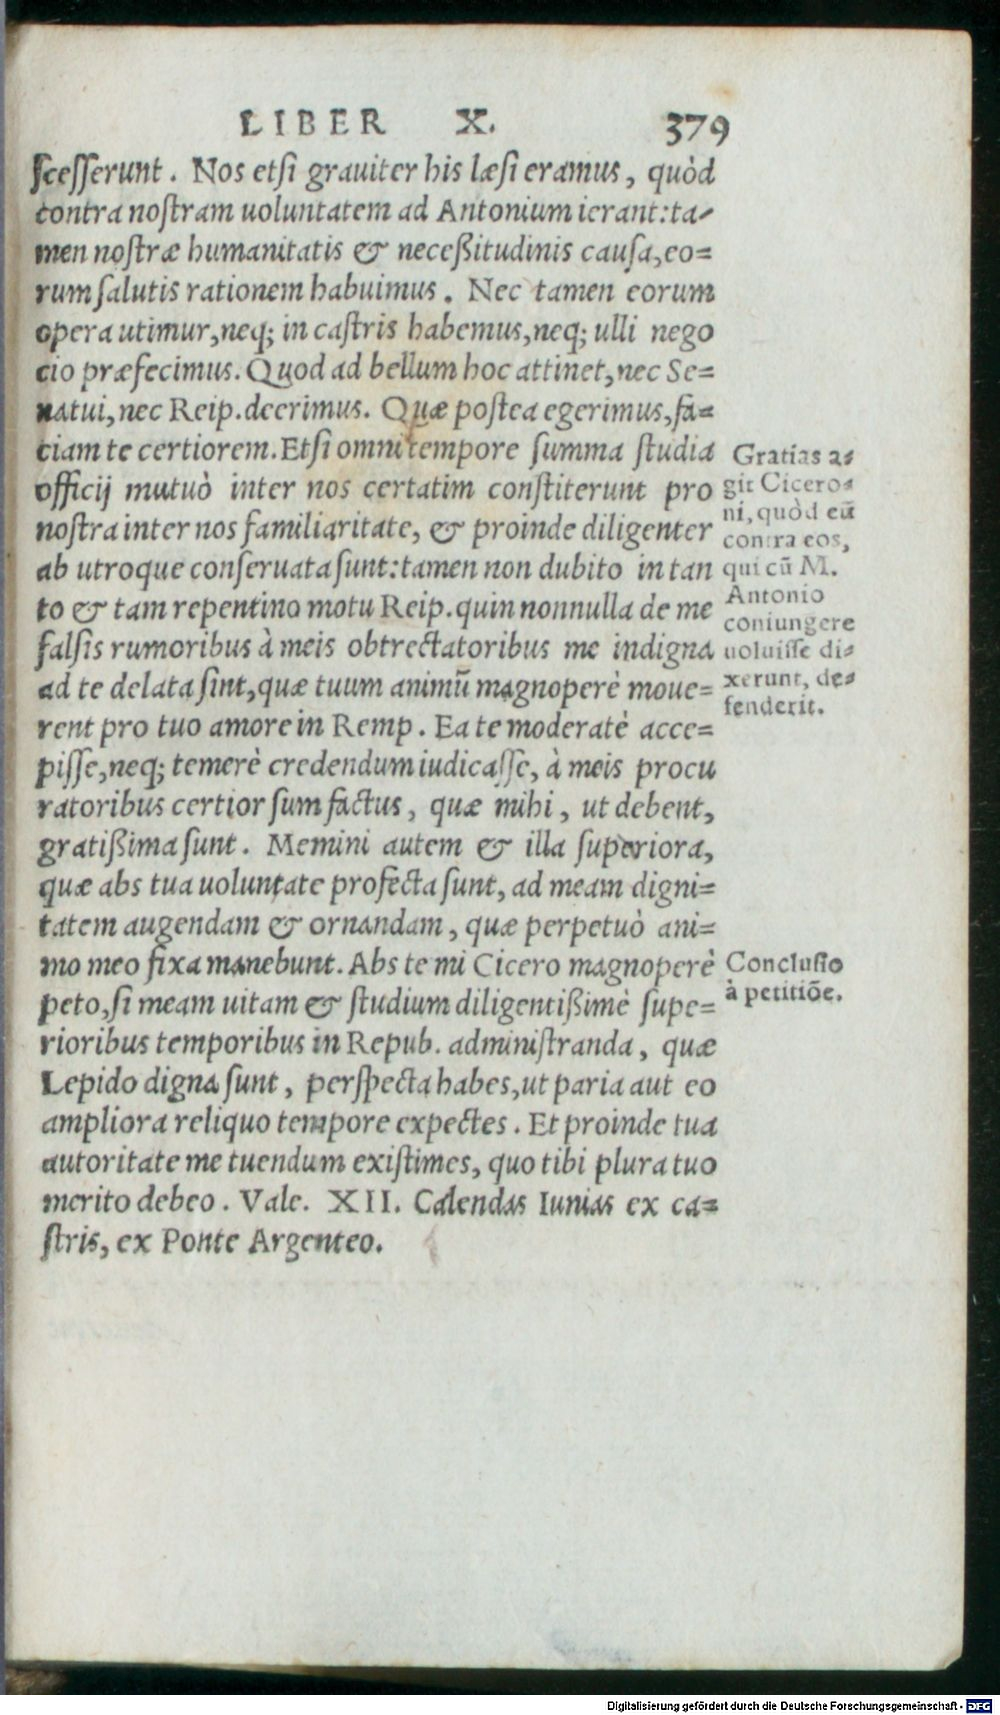 LIBER X. 379
ſceſſerunt. Nos etſi grauiter his læſi eramus, quòd
contra noſtram uoluntatem ad Antonium ierant: ta-
men noſtræ humanitatis & neceßitudinis cauſa, eo=
rum ſalutis rationem habuimus. Nec tamen eorum
opera utimur, neq; in caſtris habemus, neq; ulli nego
cio præfecimus. Quod ad bellum hoc attinet, nec Se=
natui, nec Reip. deerimus. Quæ poſtea egerimus, fa=
ciam te certiorem. Etſi omni tempore ſumma ſtudia
officij mutuò inter nos certatim conſtiterunt pro
noſtra inter nos familiaritate, & proinde diligenter
ab utroque conſeruata ſunt: tamen non dubito in tan
to & tam repentino motu Reip. quin nonnulla de me
falſis rumoribus à meis obtrectatoribus me indigna
ad te delata ſint, quæ tuum animū magnoperè moue=
rent pro tuo amore in Remp. Ea te moderatè acce=
piſſe, neq; temerè credendum iudicaſſe, à meis procu
ratoribus certior ſum factus, quæ mihi, ut debent,
gratißima ſunt. Memini autem & illa ſuperiora,
quæ abs tua uoluntate profecta ſunt, ad meam digni=
tatem augendam & ornandam, quæ perpetuò ani=
mo meo fixa manebunt. Abs te mi Cicero magnoperè
peto, ſi meam uitam & ſtudium diligentißimè ſupe=
rioribus temporibus in Repub. adminiſtranda, quæ
Lepido digna ſunt, perſpecta habes, ut paria aut eo
ampliora reliquo tempore expectes. Et proinde tua
autoritate me tuendum exiſtimes, quo tibi plura tuo
merito debeo. Vale. XII. Calendas Iunias ex ca=
ſtris, ex Ponte Argenteo.
Gratias a=
git Cicero=
ni, quòd eū
contra eos,
qui cū M.
Antonio
coniungere
uoluiſſe di=
xerunt, de=
fenderit.
Concluſio
à petitiōe.
Digitalisierung gefördert durch die Deutsche Forschungsgemeinschaft - DFG